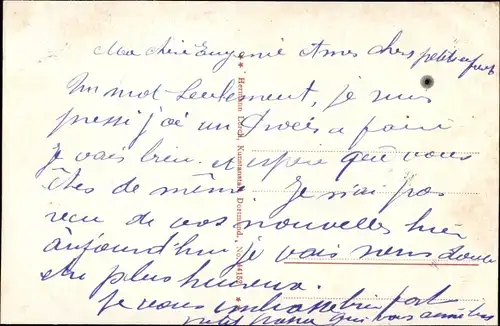 Ma chère Eugenie et mes chers petits enfants
Un mot seulement, je suis
pressé j'ai un Procès a faire
je vais bien. espère que vous
êtes de même je n'ai pas
recu de vos nouvelles hier
aujourd'hui je vais sans doute
etre plus heureux.
Je vous embrasse bien fort
qui vous aime
* Hermann Lorch, Kunstanstalt, Dortmund, No.